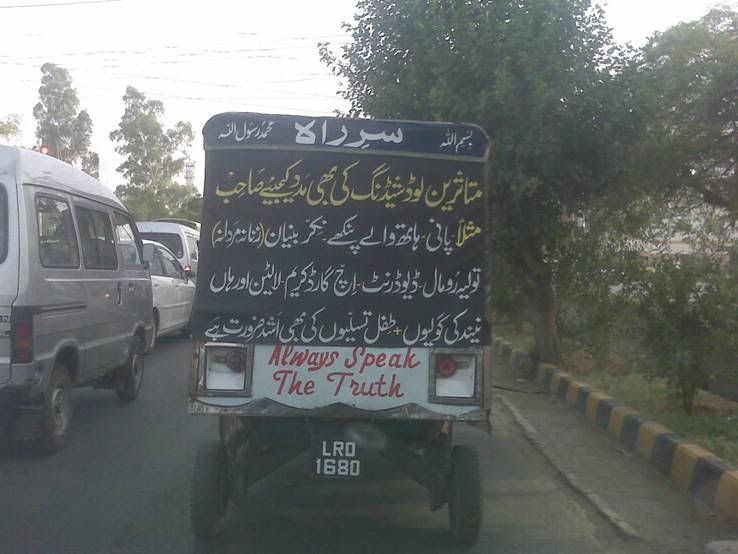 بسم اللہ سرِ راہ محمد رسول اللہ
متاثرین لوڈشیڈنگ کی بھی مدد کیجیئے صاحب
مثلاً پانی - ہاتھ والے پنکھے - نکر بنیان (زنانہ مردانہ)
تولیہ رُومال - ڈیوڈرنٹ - اِچ گارڈ کریم - لالٹین اور ہاں
نیند کی گولیوں + طفل تسلیّوں کی بھی اشد ضرورت ہے
Always Speak
The Truth
LRO
1680